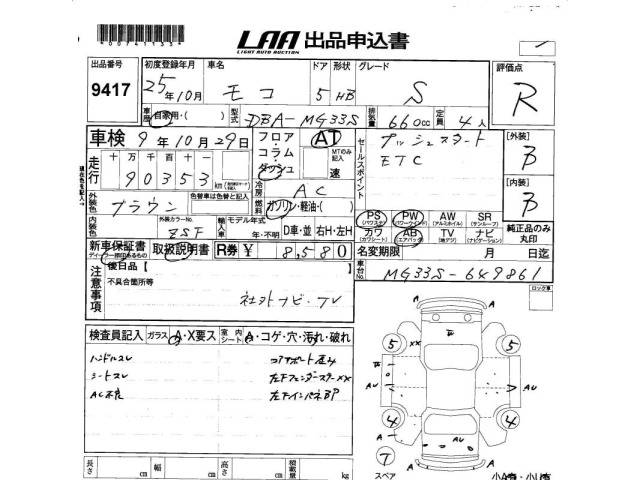 00741133
LAA 出品申込書
LIGHT AUTO AUCTION
出品番号 初度登録年月 車名 ドア 形状 グレード 評価点
9417 25年10月 モコ 5 HB S R
車歴 自家用・( ) 型式 DBA-MG33S 排気量 660cc 定員 4人
車検 9年10月29日 フロア・コラム・ダッシュ AT MTのみ記入 速
セールスポイント プッシュスタート
ETC
[外装] B
走行 十万千百十一 90353 km
冷房 AC
[内装] B
外装色 ブラウン 色替車は色替と記入 燃料 ガソリン・軽油・( )
内装色 外装カラーNo. ZSF 輸入車 モデル年式 年・不明 D車・並 右H・左H
PS (パワステ) PW (パワーウインド) AW (アルミホイル) SR (サンルーフ)
カワ (カワシート) AB (エアバック) TV (地デジ) ナビ (ナビゲーション) 純正品のみ丸印
新車保証書 取扱説明書 R券 ¥ 8,580 名変期限 月 日迄
注意事項 後日品【
不具合箇所等
社外ナビ・TV
車台No. MG33S-649861
ロック車
検査員記入 ガラス A・X要ス 室内シート A・コゲ・穴・汚れ・破れ
ハンドルスレ コアサポート歪み
シートスレ 左下フェンダーステーXX
AC不良 左下インパネBP
XX
5 5
A AU AU A
4 4
A A
AU
7
スペア A
長さ cm 幅 cm 高さ cm 積載量 kg